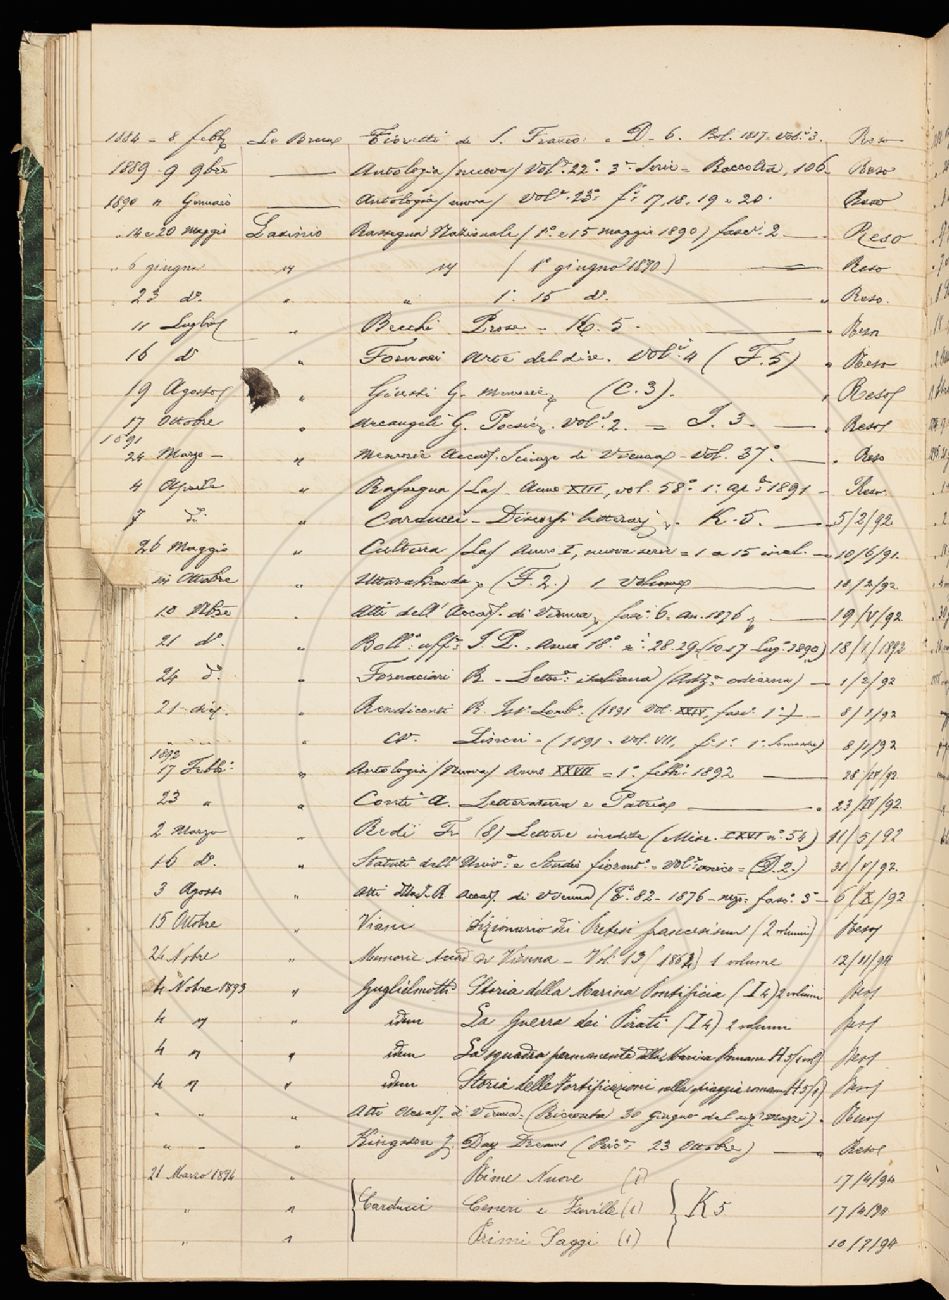 1884 - 8 Le Fioretti di S. - D. 6. Bol. 1817. Vol. 3. Reso
1889 - 9 9bre — Antologia /nuova/ Vol. 22° 3ª Serie - Raccolta, 106. Reso
1890 " Gennaio — Antologia /nuova/ Vol. 23° f. 17, 18, 19 e 20. Reso
" 14 e 20 Maggio Lasinio Rassegna Nazionale (1° e 15 maggio 1890) fasc. 2 — Reso
" 6 giugno " " (1° giugno 1890) — Reso
23 d° " " 1° 15 d° " Reso.
11 Luglio " Becchi Prose - K. 5. — " Reso
16 d° " Fornari Arte del dire. Vol. 4 (F. 5) " Reso
19 Agosto " Giusti G. (C. 3). " Reso
17 Ottobre " Arcangeli G. Poesie. Vol. 2. = I. 3. — " Reso
1891
24 Marzo - " Memorie Accad. Scienze di Vienna - Vol. 37° — " Reso
4 Aprile " Rassegna /La/ - Anno XIII, vol. 58° 1° ap. 1891 - Reso
7 d° " Carducci - Discorsi letterari. K. 5. — 5/2/92
26 Maggio " Cultura /La/ Anno I, nuova serie = 1 a 15 — 10/6/91.
Ottobre " (F. 2.) 1 Volume — 10/2/92
10 Nbre " Atti dell' Accad. di Vienna, fasc. 6. an. 1876 — 19/V/92
21 d° " Boll. uff. I. P. - Anno 18° n. 28.29 (10-17 lug. 1890) 18/1/1892
24 d° " Fornaciari R - Lett. italiana ( odierna) — 1/2/92
21 " Rendiconti R. Ist. Lomb. (1891 Vol. XXIV, fasc. 1°) — 8/1/92
" Lincei - (1891 - Vol. VII, f. 1° 1° Semestre) 8/1/92
1892
17 Febb. " Antologia /Nuova/ Anno XXVII = 1° febb. 1892 — 28/IV/92
23 " " Conti A. Letteratura e Patria — " 23/IV/92.
2 Marzo " Redi Fr (8) Lettere inedite (Misc. CXVI n. 54) 11/5/92
16 d° " Statuti dell' Univ. e Studio fiorent. - Vol. unico = (D. 2.) 31/V/92.
3 Agosto " Atti Accad. di Vienna 82 - 1876 - fasc. 3° - 6/X/92
15 Ottobre " Viani Dizionario dei Pretesi francesismi (2 volumi) Reso
24 Nbre " Memorie Accad. di Vienna - Vol. 13 (1862) 1 volume 12/11/94
4 Nbre 1893 " Guglielmotti Storia della Marina Pontificia (I 4) 2 volumi Reso
4 " " idem La Guerra dei Pirati (I 4) 2 volumi Reso
4 " " idem La squadra permanente della Marina Romana Reso
4 " " idem Storia delle Fortificazioni nella spiaggia romana Reso
" " " Atti Accad. di Vienna. (Riscontro 30 Giugno del ) . Reso
" " " Kingston J. Day Dreams ( 23 Ottobre) — Reso
21 Marzo 1894 " Rime Nuove (1) 17/4/94
" " Carducci Ceneri e Faville (1) K 5 17/4/94
" " Primi Saggi (1) 10/7/94